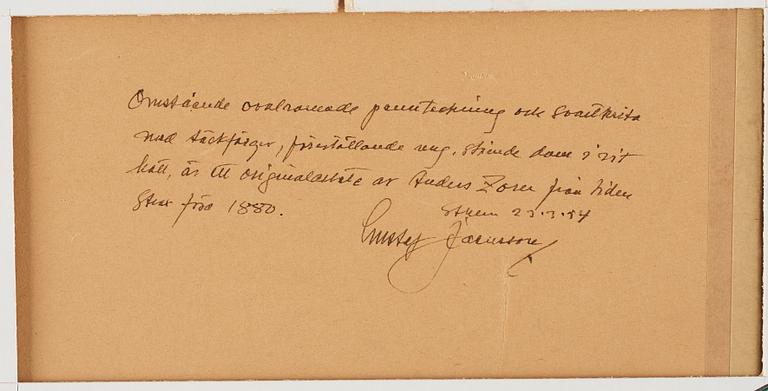 Omstående ovalramade pennteckning och svartkrita
med täckfärger, föreställande ung, stående dam i vit
hatt, är ett originalarbete av Anders Zorn från tiden
strax före 1880.
Sthlm 23.3.54
Gustaf Jacobsson